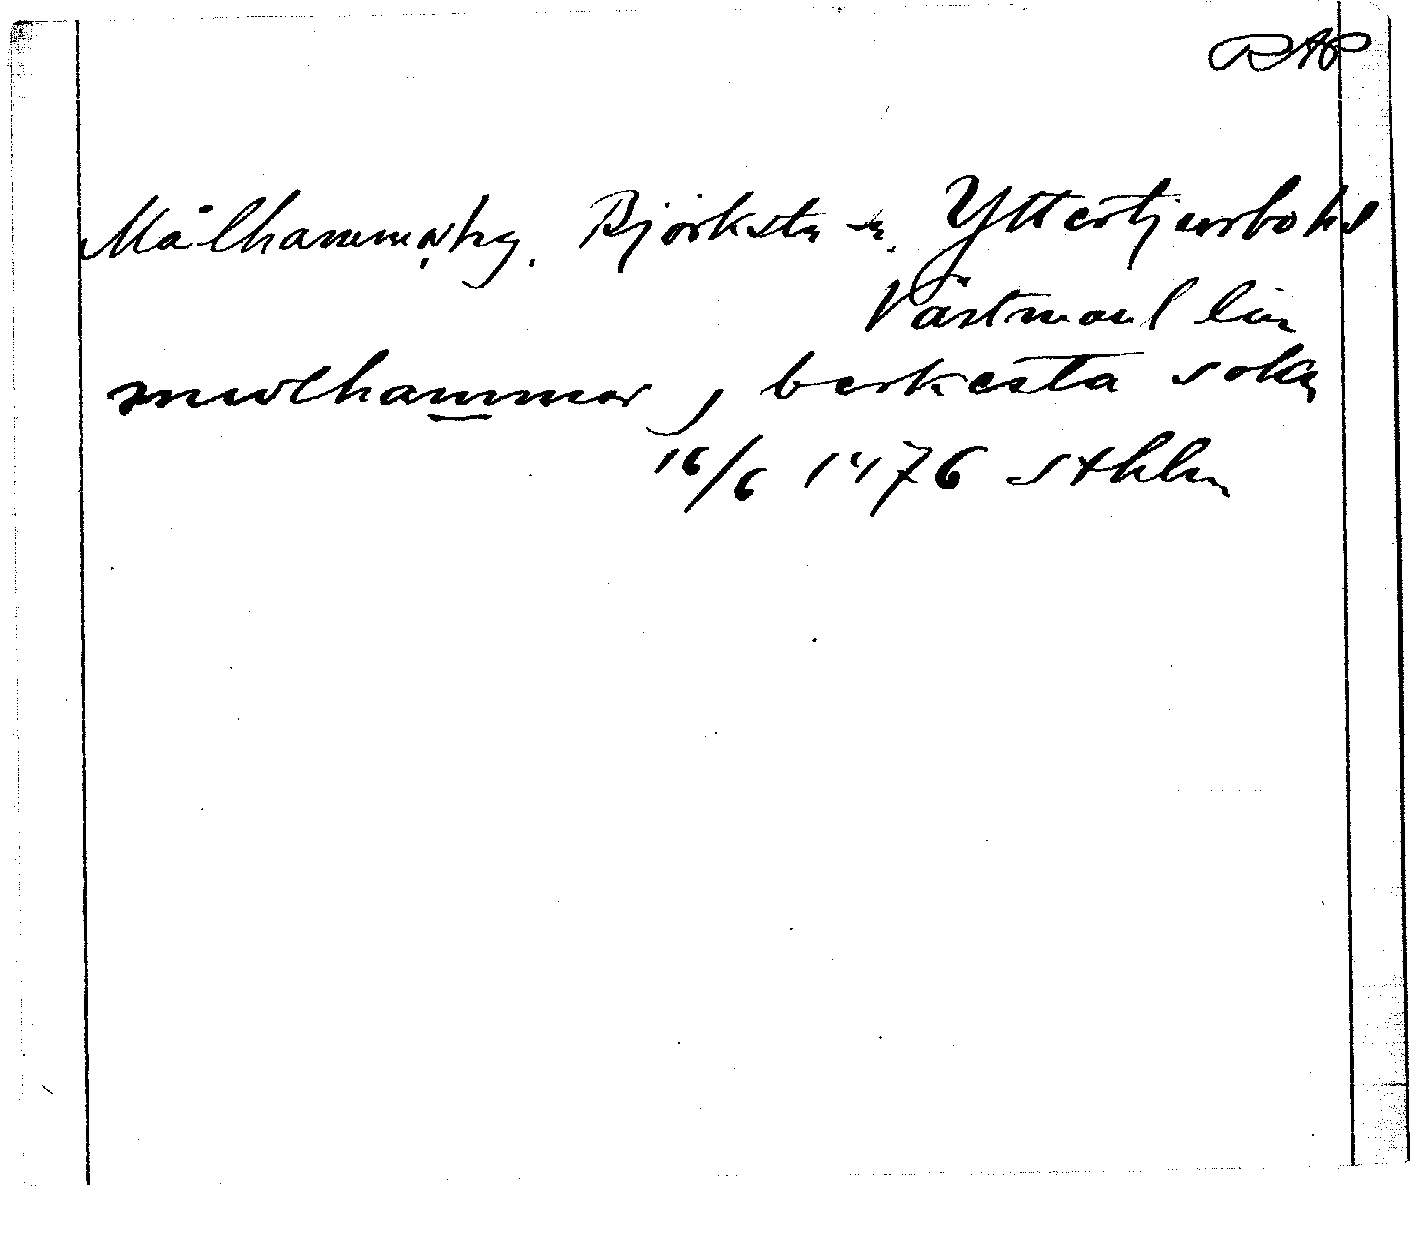 RAP
Målhammar, hg. Björksta sn. Yttertjurbo hd
Västmanl län
mwlhammar, berkesta sokn
16/6 1476 Sthlm